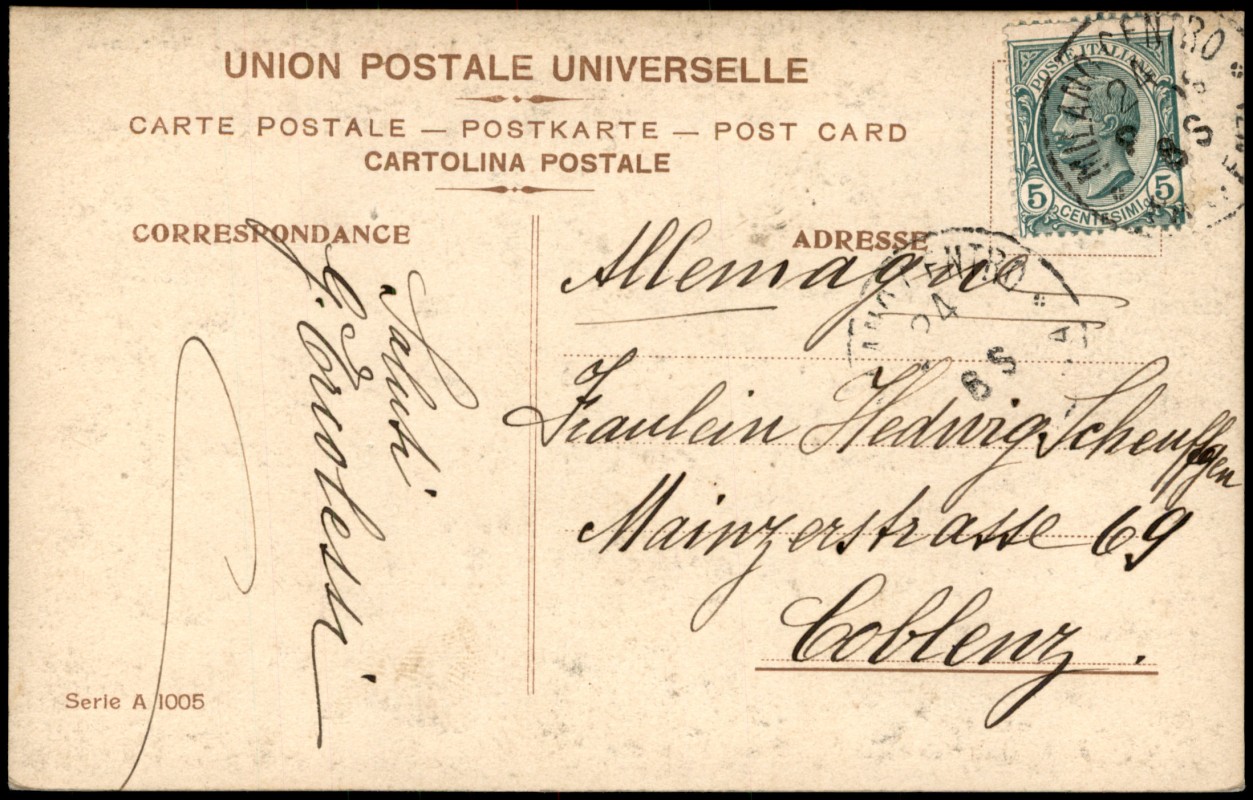 UNION POSTALE UNIVERSELLE
CARTE POSTALE — POSTKARTE — POST CARD
CARTOLINA POSTALE
CORRESPONDANCE
ADRESSE
POSTE ITALIANE
5 CENTESIMI 5
MILANO CENTRO
24
8 S
Allemagna
Fraulein Hedwig Scheuffgen
Mainzerstrasse 69
Coblenz.
Saluti
Serie A 1005